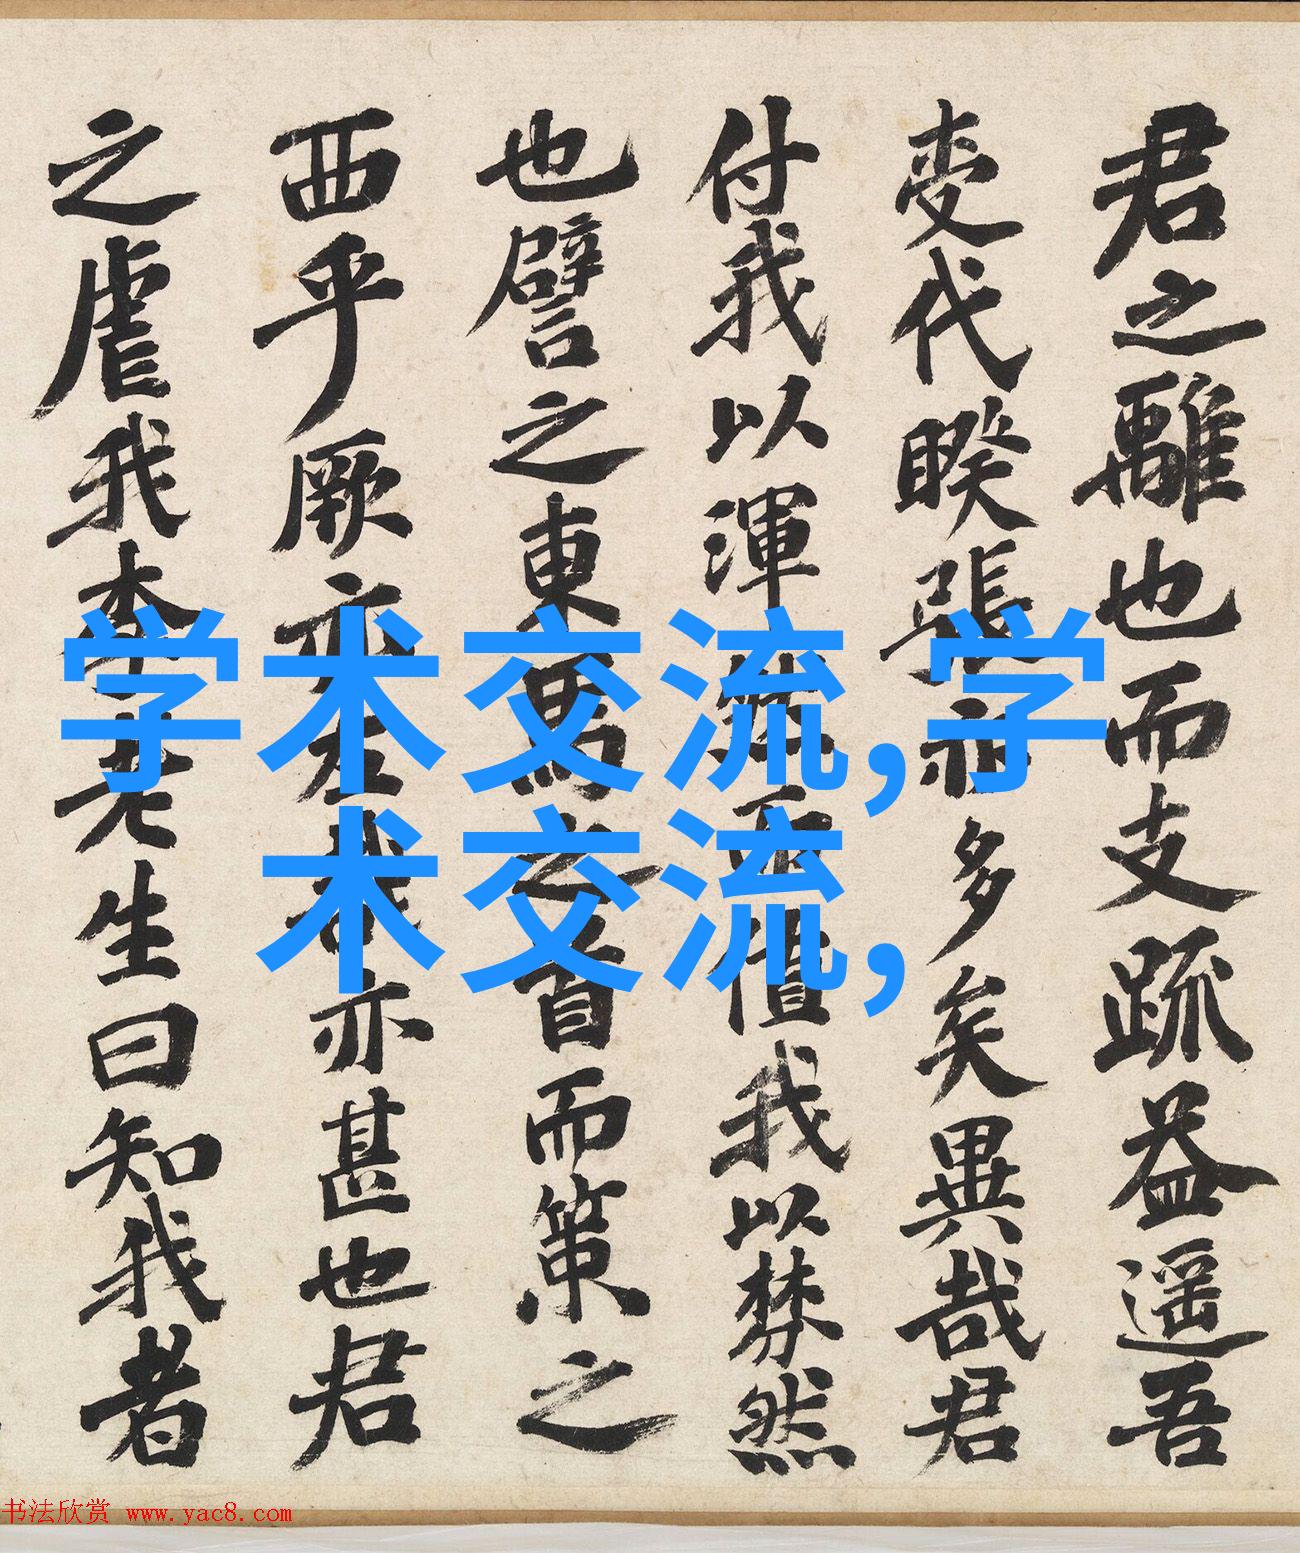 君之離也而支疏益遥吾
麦代睽張禄多矣異哉君
付我以渾純而值我以棼然
也譬之東馬之首而策之
西乎厥亦左哉亦甚也君
之虐我李老生曰知我者
学术交流,学
术交流,
书法欣赏 www.yac8.com